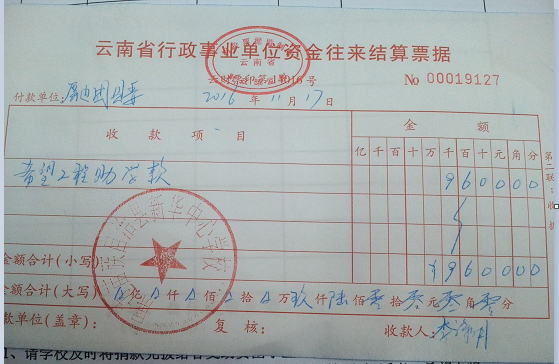 云南省行政事业单位资金往来结算票据
云南省
No 00019127
付款单位:
2016 年 11 月 17 日
收款项目
金额
亿 千 百 十 万 千 百 十 元 角 分
第二联:收
希望工程助学款
9 6 0 0 0 0
金额合计(小写)
¥ 9 6 0 0 0 0
新华中心学校
金额合计(大写) 亿 仟 佰 拾 万 玖 仟 陆 佰 零 拾 零 元 零 角 零 分
款单位(盖章): 复核: 收款人:
、请学校及时将捐款